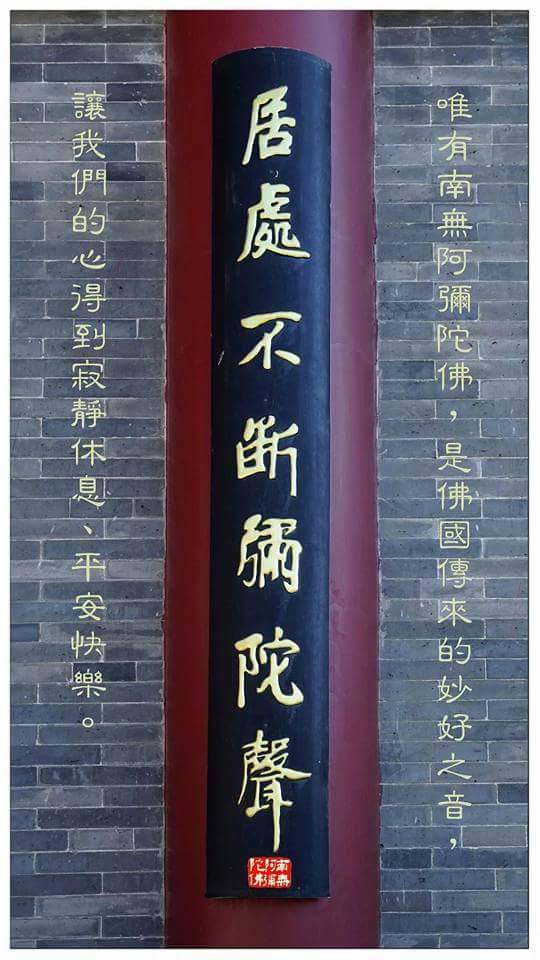 唯有南無阿彌陀佛，是佛國傳來的妙好之音，
居處不断彌陀聲
南無阿彌陀佛
讓我們的心得到寂靜休息、平安快樂。